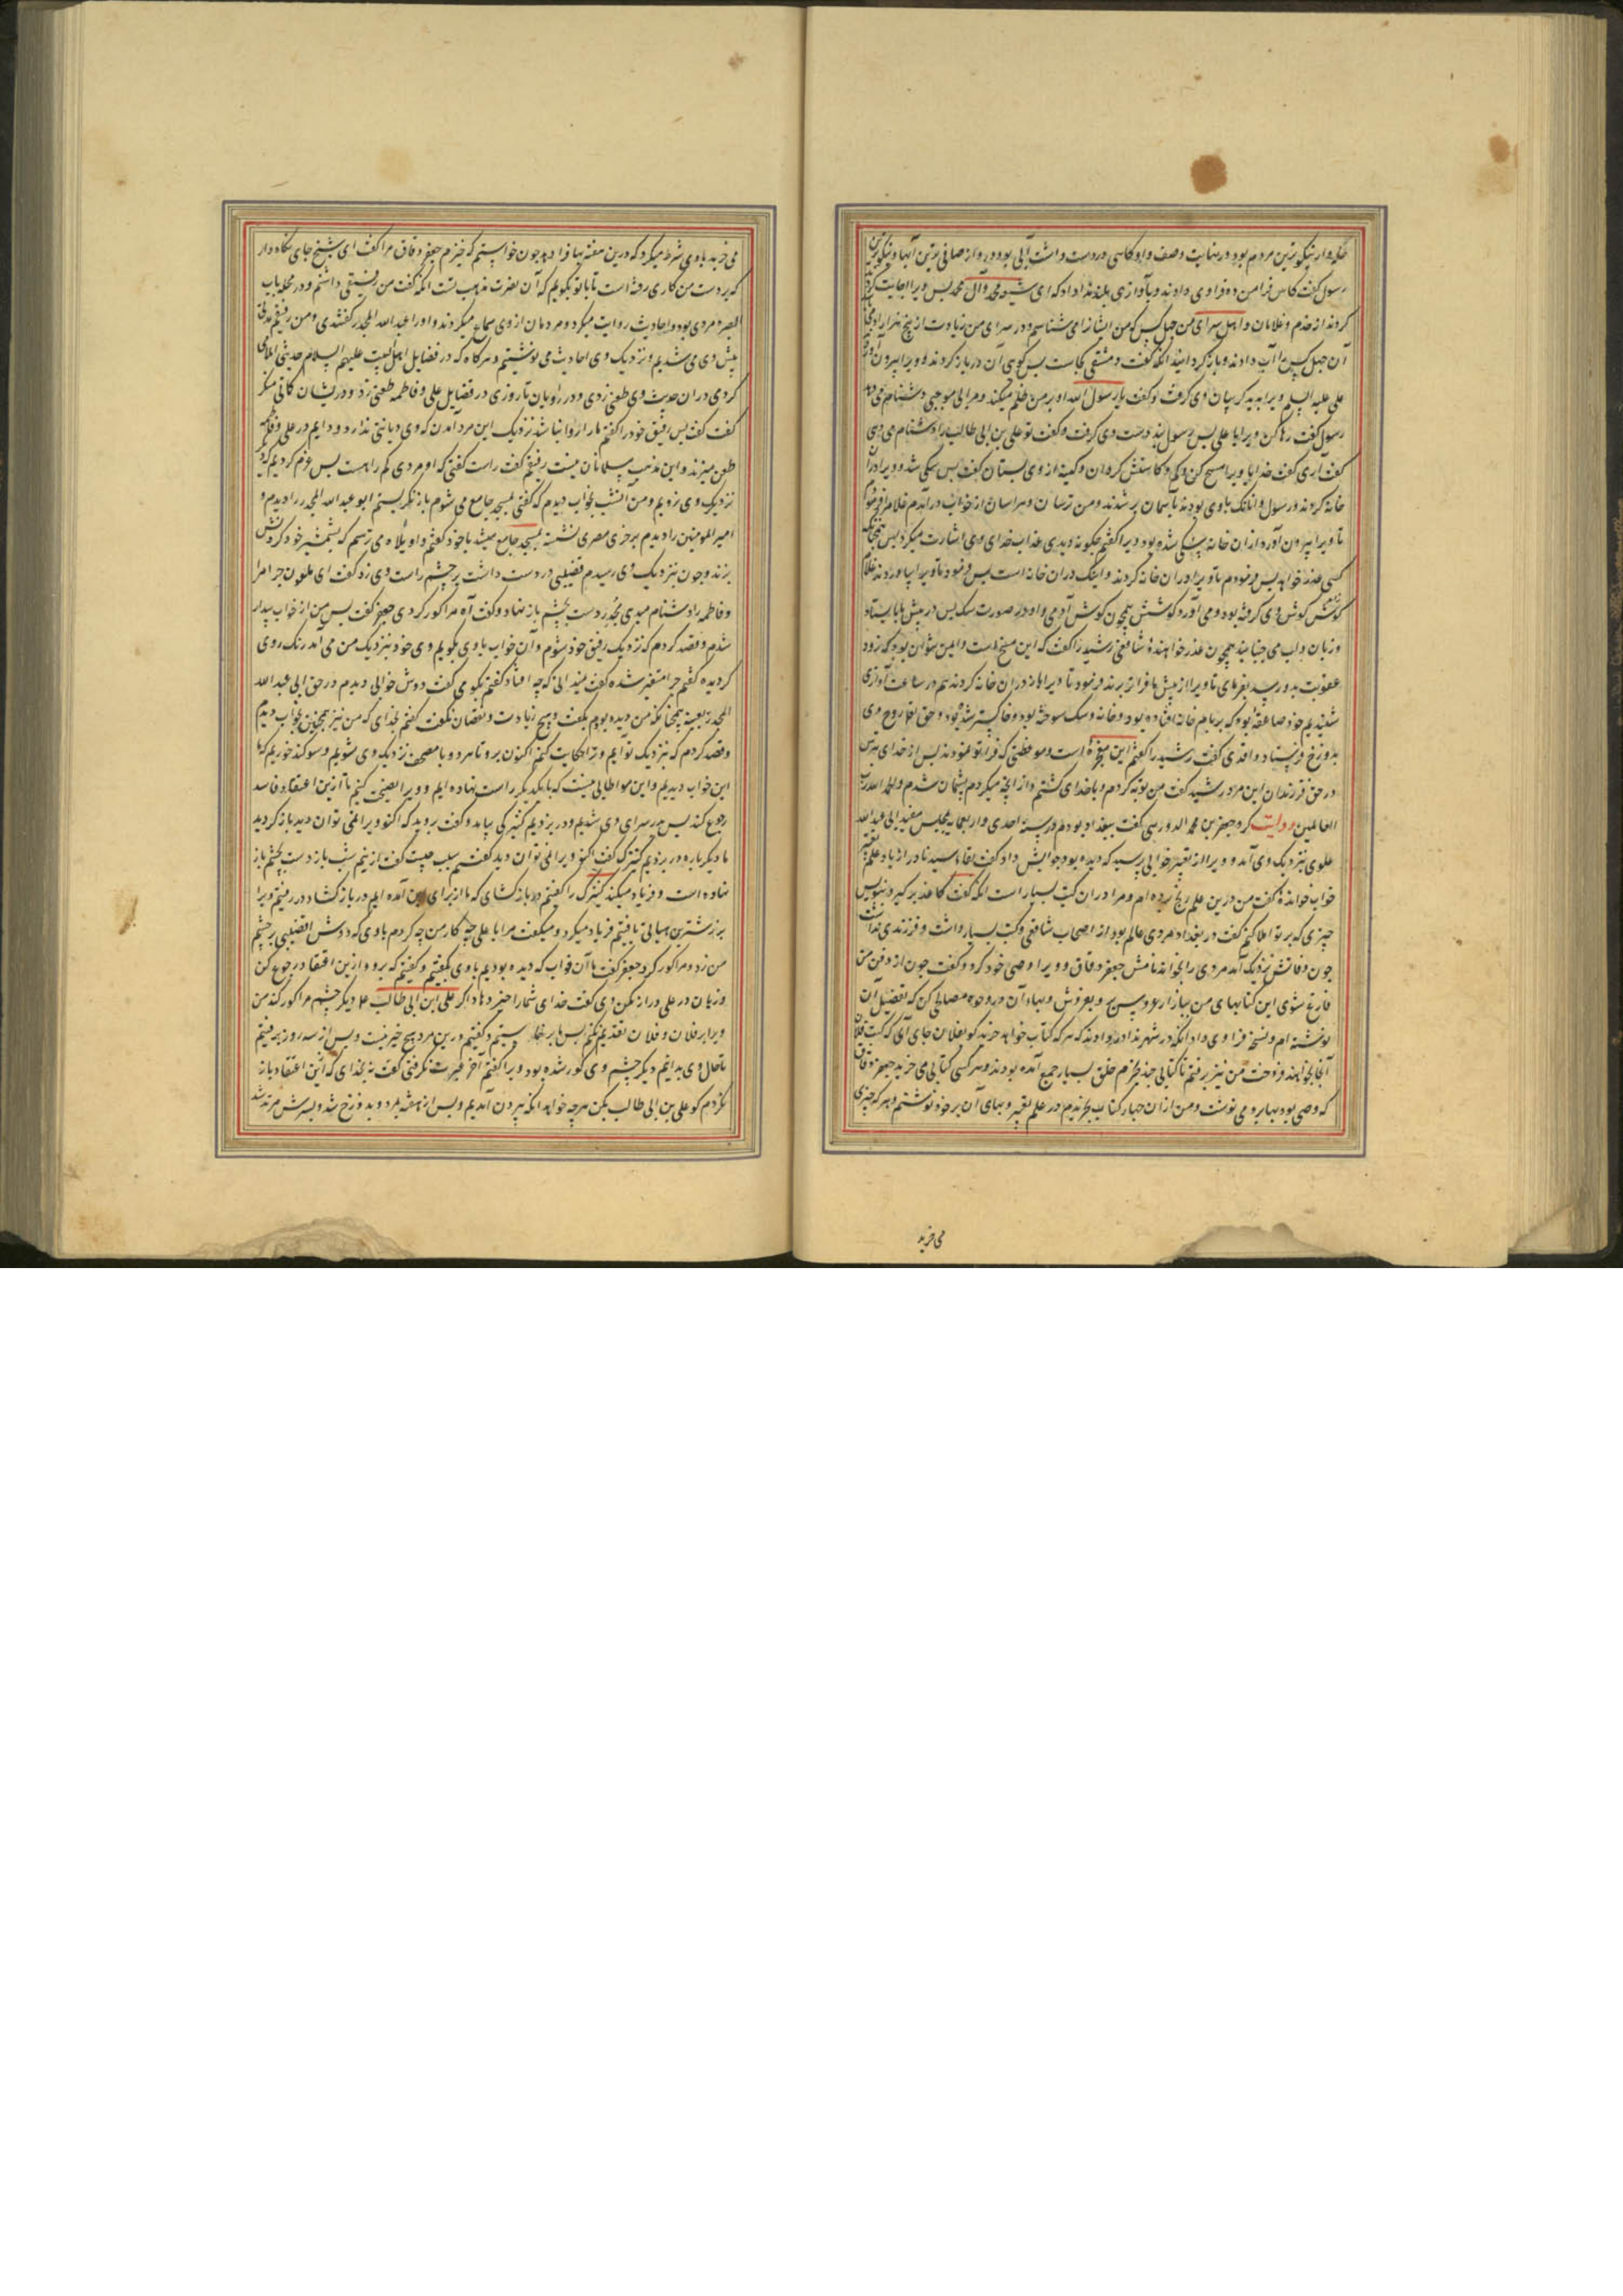 رسول گفت کاس فرا من ده فرا وی دادند و بآوازی بلند ندا داد که ای شیعه محمد و آل محمد پس ویرا اجابت کردند
کردند از خدم و غلامان و اهل سرای من چهل کس که من ایشانرا می شناسم و در سرای من زیادت از پنج هزار
آن چهل کس را آب دادند و باز گردانیدند آنکه گفت دمشقی کجاست پس گویی آن در باز کردند و ویرا بیرون آوردند
علی علیه السلم ویرا بدید گریبان وی گرفت و گفت یا رسول الله او بر من ظلم میکند و مرا بی موجبی دشنام می دهد
رسول گفت رها کن ویرا یا علی پس رسول بند دست وی گرفت و گفت تو علی بن ابی طالب را دشنام می دهی
گفت آری گفت خدایا ویرا مسخ کن
خانه کردند و رسول و آنانک با وی بودند بآسمان بر شدند و من ترسان و هراسان از خواب درآمدم غلام را فرمود
تا ویرا بیرون آورد از آن خانه سگی شده بود ویرا گفتم چگونه دیدی عذاب خدای
کسی عذر خواهد پس فرمودم تا ویرا در آن خانه کردند و اینک در آن خانه است پس فرمود تا ویرا بیاوردند غلام
گوش وی گرفته بود و می آورد گوشش همچون گوش آدمی و او در صورت سگ پس در پیش ما بایستاد
و زبان و لب می جنبانید همچون عذر خواهنده شافعی رشید را گفت که این مسخ است و ایمن نتوان بود که زود
عقوبت بدو رسد بفرمای تا ویرا از پیش ما فراتر برند فرمود تا ویرا باز در آن خانه کردند هم در ساعت آوازی
شنیدیم خود صاعقه بود که بر بام خانه افتاده بود و خانه و سگ سوخته بود و خاکستر شده بود و حق تعالی روح وی
بدوزخ فرستاد واقدی گفت رشید را گفتم این معجزه است و موعظتی که فرا تو نمودند پس از خدای بترس
در حق فرزندان این مرد رشید گفت من توبه کردم و با خدای گشتم و از آنچه میکردم پشیمان شدم و الحمد لله رب
العالمین روایت کرد جعفر بن محمد الدوریستی گفت ببغداد بودم در سنه احدی و اربعمایه بمجلس مفید ابی عبدالله
علوی نزدیک وی آمد و ویرا از تعبیر خوابی پرسید که دیده بود جوابش داد گفت بقاء سیدنا دراز باد علم تعبیر
خواب خوانده گفت من درین علم رنج برده ام و مرا در آن کتب بسیار است آنکه گفت کاغذ برگیر و بنویس
چیزی که بر تو املا کنم گفت در بغداد مردی عالم بود از اصحاب شافعی و کتب بسیار داشت و فرزندی نداشت
چون وفاتش نزدیک آمد مردی را بخواند نامش جعفر دقاق و ویرا وصی خود کرد و گفت چون از دفن من
فارغ شوی این کتابهای من ببازار عروس بر و بفروش و بهاء آن در وجوه مصالحی کن که تفصیل آن
نوشته ام و نسخه فرا وی داد آنکه در شهر ندا در دادند که هر که کتاب خواهد خرید گو بفلان جای آی که کتب فلان
آنجا بخواهند فروخت من نیز برفتم تا کتابی چند بخرم خلق بسیار جمع آمده بودند و هر کسی کتابی می خرید جعفر دقاق
که وصی بود بها بر وی می نوشت و من از آن چهار کتاب بخریدم در علم تعبیر و بهای آن بر خود نوشتم و هر که چیزی
می خرید
می خرید با وی شرط میکرد که درین هفته بها فرا دهد چون خواستم که خیزم جعفر دقاق مرا گفت ای شیخ جای نگاه دار
که بر دست من کاری رفته است تا با تو بگویم که آن نصرت مذهب تست آنکه گفت من رفیقی داشتم و در محله باب
البصره مردی بود و احادیث روایت میکرد و مردمان از وی سماع میکردند و او را عبدالله المحدث گفتندی و من و رفیقم مدتی
پیش وی می شدیم و نزدیک وی احادیث می نوشتیم و هرگاه که در فضایل اهل البیت علیهم السلام حدیثی املا
کردی در آن حدیث وی طعن زدی و در راویان تا روزی در فضایل علی و فاطمه طعنی زد
گفت پس رفیق خود را گفتم ما را روا نباشد نزدیک این مرد آمدن که وی دیانتی ندارد و دایم در علی و فاطمه
طعن میزند و این مذهب مسلمانان نیست رفیقم گفت راست گفتی که او مردی گم راهست پس عزم کردیم که دیگر
نزدیک وی نرویم و من آنشب بخواب دیدم که گفتی بمسجد جامع می شوم باز نگریستم ابو عبدالله المحدث را دیدم و
امیر المومنین را دیدم بر خری مصری نشسته بمسجد جامع میشد با خود گفتم واویلاه می ترسم که بشمشیر خود گردنش
بزند و چون نزدیک وی رسیدم قضیبی در دست داشت بر چشم راست وی زد گفت ای ملعون چرا مرا
و فاطمه را دشنام میدی محدث دست بچشم باز نهاد و گفت آه مرا کور کردی جعفر گفت پس من از خواب بیدار
شدم و قصد کردم که نزدیک رفیق خود شوم و آن خواب با وی بگویم وی خود بنزدیک من می آمد رنگ روی
گردیده گفتم چرا متغیر شده گفت میدانی که چه افتاد گفتم بگو می گفت دوش خوابی دیدم در حق ابی عبدالله
المحدث بعینه همچنانکه من دیده بودم بگفت و هیچ زیادت و نقصان نگفت گفتم بخدای که من نیز همچنین بخواب دیدم
و قصد کردم که بنزدیک تو آیم و ترا حکایت کنم اکنون برو تا هر دو با مصحف نزدیک وی شویم و سوگند خوریم که ما
این خواب دیدیم و این مواطاتی نیست که با یکدیگر راست نهاده ایم و ویرا نصیحت کنیم تا از این اعتقاد فاسد
رجوع کند پس بدر سرای وی شدیم و در بزدیم کنیزکی بیامد و گفت بروید که اکنون ویرا نمی توان دید باز گردید
ما دیگر باره در بزدیم کنیزک گفت اکنون ویرا نمی توان دید گفتیم سبب چیست گفت از نیم شب باز دست بچشم باز
نهاده است و فریاد میکند کنیزک را گفتیم در باز گشای که ما از برای این آمده ایم در باز گشاد در رفتیم ویرا
بر زشترین هیاتی یافتیم فریاد میکرد و میگفت مرا با علی چه کار من چه کردم با وی که دوش قضیبی بر چشم
من زد و مرا کور کرد جعفر گفت ما آن خواب که دیده بودیم با وی بگفتیم و گفتیم که برو و ازین اعتقاد رجوع کن
و زبان در علی دراز مکن وی گفت خدای شما را خیر دهاد اگر علی ابن ابی طالب علا دیگر چشم مرا کور کند من
ویرا بر فلان و فلان تقدیم نکنم پس برخاستیم و گفتیم درین مرد هیچ خیر نیست و پس از سه روز برفتیم
تا حال وی بدانیم دیگر چشم وی کور شده بود ویرا گفتم آخر عبرت نگرفتی گفت نه بخدای که از این اعتقاد باز
نگردم گو علی بن ابی طالب بکن هر چه خواهد آنکه بیرون آمدیم و پس از هفته بمرد و بدوزخ شد و پسرش مرتد شد